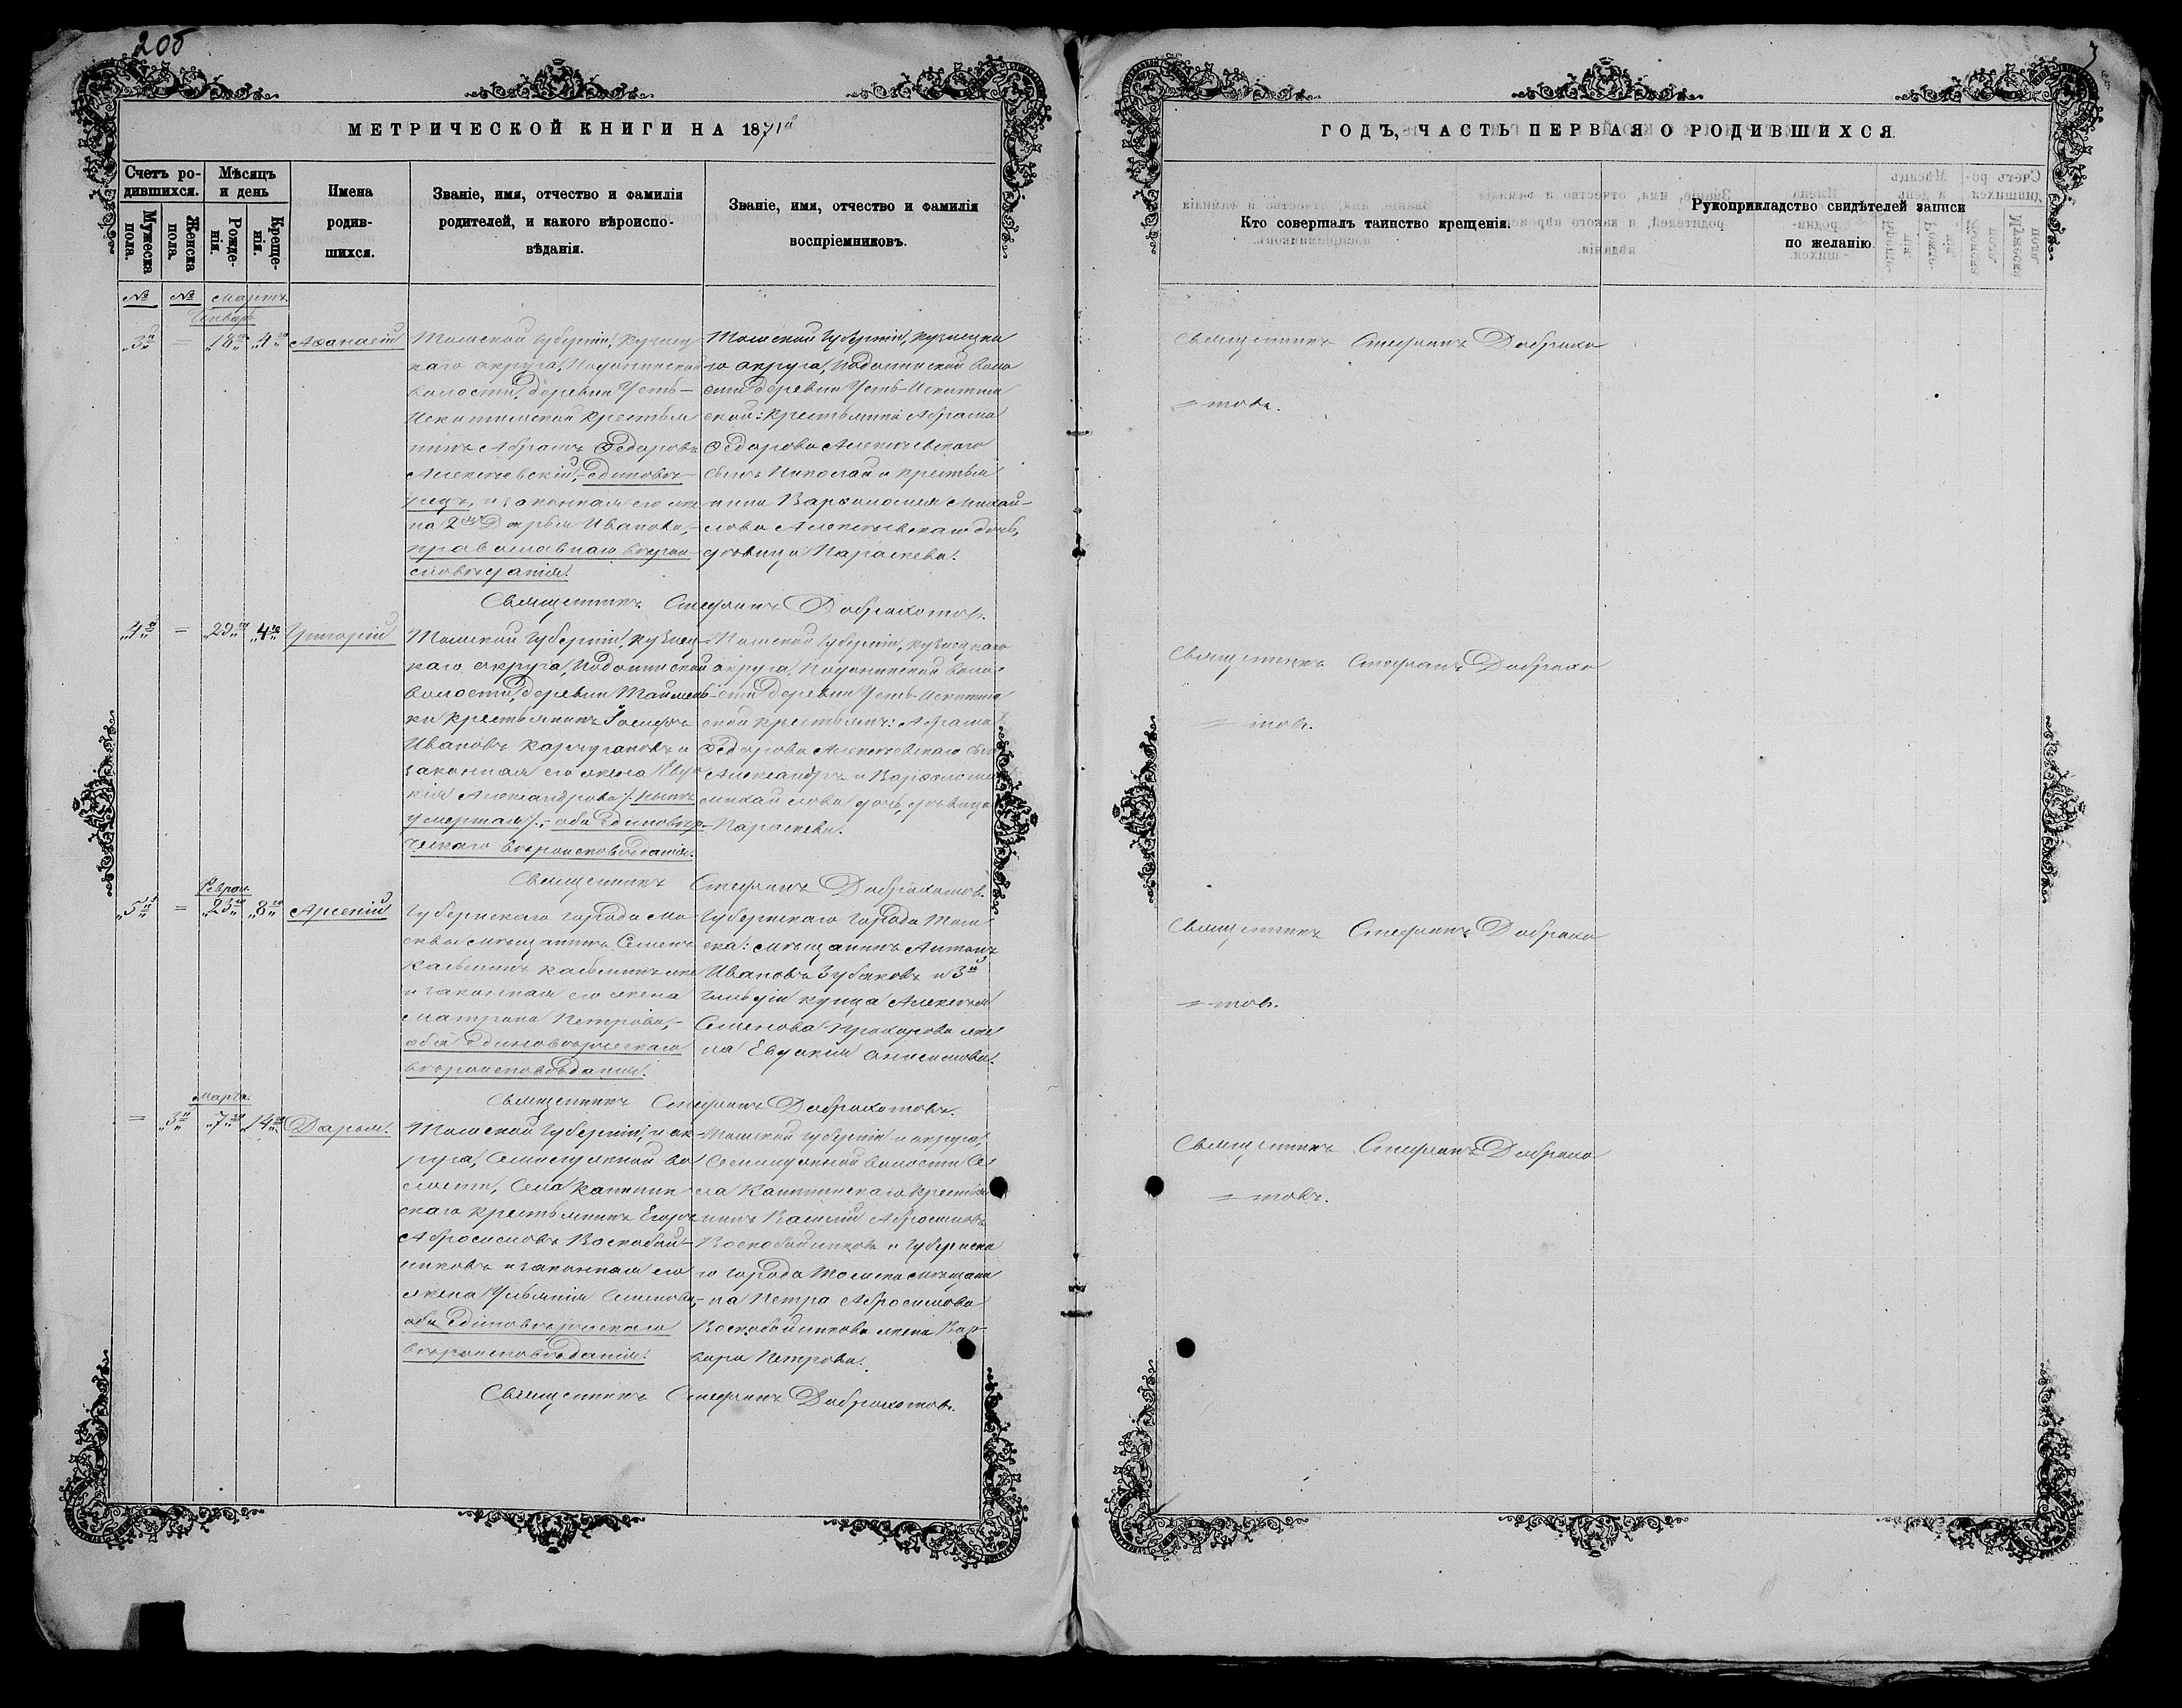 205
3
МЕТРИЧЕСКОЙ КНИГИ НА 1871й
Счетъ ро-
дившихся.
Мужеска
пола.
Женска
пола.
Мѣсяцъ
и день
Рожде-
нія.
Креще-
нія.
Имена
родив-
шихся.
Званіе, имя, отчество и фамилія
родителей, и какого вѣроиспо-
вѣданія.
Званіе, имя, отчество и фамилія
воспріемниковъ.
№ № Мартъ.
Январь
„3й„ = „18го„ „4го„ Аѳанасій
Томской губерніи, Кузнец-
каго округа,
волости, деревни Усть-
Искитимской крестья
нинъ Абрамъ Ѳедоровъ
Алексѣевскій, единовѣ-
рецъ, и законная его же
на 2мъ Дарья Иванова,
православнаго вѣрои-
сповѣданія.
Томской губерніи, Кузнецка
го округа, волос
сти деревни Усть-Искитим
ской: крестьянина Абрама
Ѳедорова Алексѣевскаго
сынъ Николай и крестья
нина Варѳоломея Михай-
лова Алексѣевскаго дочь,
дѣвица Параскева.
Священникъ Стефанъ Доброхотовъ.
„4й„ = „23го„ „4го„ Григорій
Томской губерніи, Кузнец-
каго округа,
волости, деревни Таймен
ки крестьянинъ Іосифъ
Ивановъ и
законная его жена Евдо
кія Александрова /: нынѣ
умершая/:, оба единовѣр-
ческаго вѣроисповѣданія.
Томской губерніи, Кузнецкаго
округа, воло-
сти деревни Усть-Искитим
ской крестьянъ: Абрама
Ѳедорова Алексѣевскаго сынъ
Александръ и Варѳоломея
Михайлова дочь, дѣвица
Параскева.
Священникъ Стефанъ Доброхотовъ.
Феврал.
„5й„ = „23го„ „8го„ Арсеній
Губернскаго города Мо-
сквы мѣщанинъ Семенъ
и законная его жена
Матрона Петрова,
оба единовѣрческаго
вѣроисповѣданія.
Губернскаго города Том
ска: мѣщанинъ Антонъ
Ивановъ Зубаковъ и 3й
гильдіи купца Алексѣя
Семенова Прохорова же
на Евдокія Анисимова.
Священникъ Стефанъ Доброхотовъ.
Марта.
= „3й„ „7го„ „14го„ Дарья.
Томской губерніи, и ок-
руга, Семилужной во
лости, села Халдѣев
скаго крестьянинъ Егоръ
Абросимовъ Воскобой-
никовъ и законная его
жена Ульянія Семенова,
оба единовѣрческаго
вѣроисповѣданія.
Томской губерніи и округа,
Семилужной волости се
ла крестья
нинъ Василій Абросимовъ
Воскобойниковъ и губернска
го города Томска мѣщани
на Петра Абросимова
Воскобойникова жена Вар-
вара Петрова.
Священникъ Стефанъ Доброхотовъ.
ГОДЪ, ЧАСТЬ ПЕРВАЯ О РОДИВШИХСЯ.
Кто совершалъ таинство крещенія.
Рукоприкладство свидѣтелей записи
по желанію.
Священникъ Стефанъ Доброхо
= товъ.
Священникъ Стефанъ Доброхо
= товъ.
Священникъ Стефанъ Доброхо
= товъ.
Священникъ Стефанъ Доброхо
= товъ.